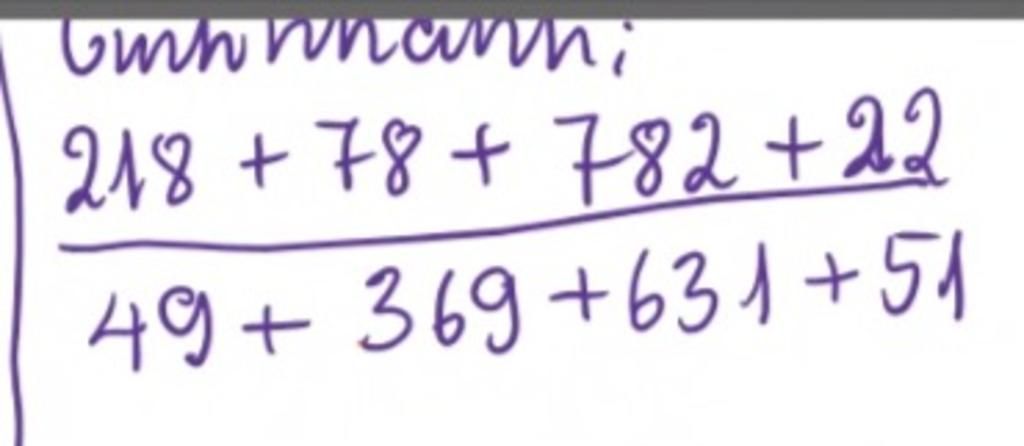 Tính nhanh:
218 + 78 + 782 + 22
49 + 369 + 631 + 51